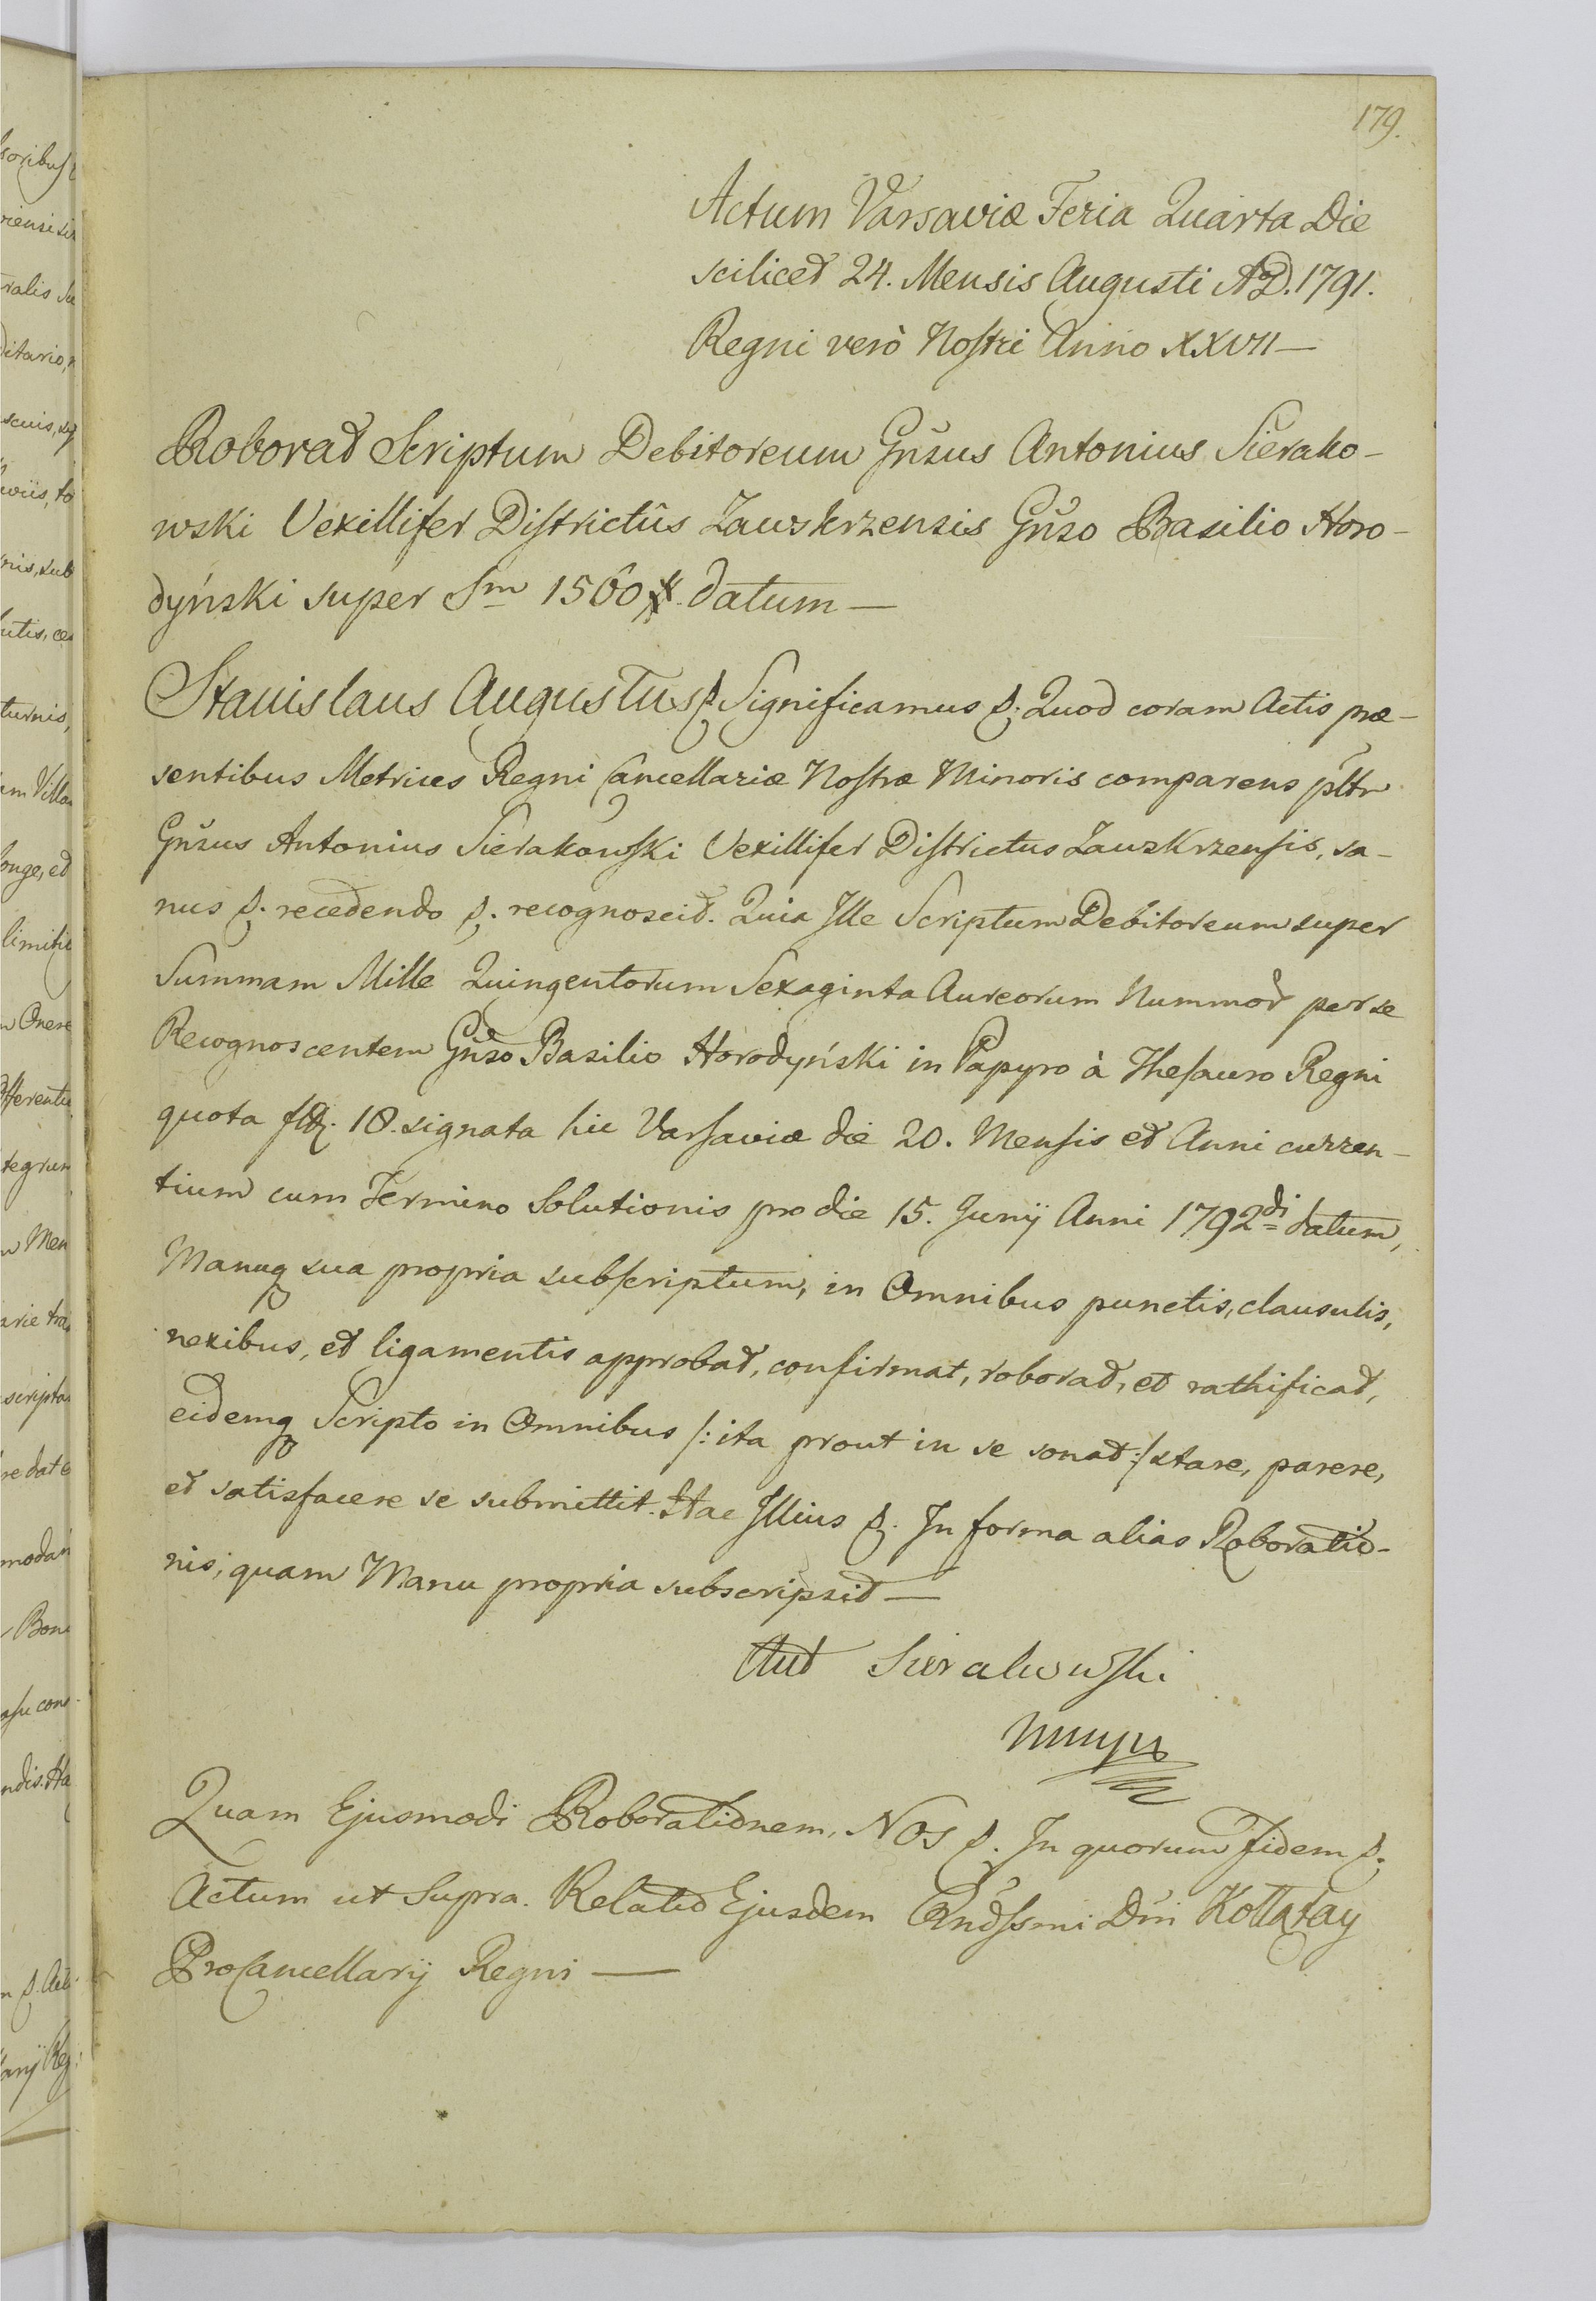 179.
Actum Varsaviæ Feria Quarta Die
scilicet 24. Mensis Augusti AD. 1791.
Regni verò Nostri Anno XXVII —
Roborat Scriptum Debitoreum Gñsus Antonius Sierako-
wski Vexillifer Districtûs Zawskrzensis Gñso Basilio Horo-
dyński super Sm 1560 datum —
Stanislaus Augustus p. Significamus p. Quod coram Actis præ-
sentibus Metrices Regni Cancellariæ Nostræ Minoris comparens pltr
Gñsus Antonius Sierakowski Vexillifer Districtus Zawskrzensis, sa-
nus p. recedendo p. recognoscit. Quia Ille Scriptum Debitoreum super
Summam Mille Quingentorum Sexaginta Aureorum Nummor per se
Recognoscentem Gñso Basilio Horodyński in Papyro à Thesauro Regni
quota 18. signata hic Varsaviæ die 20. Mensis et Anni curren-
tium cum Termino Solutionis pro die 15. Junij Anni 1792di datum,
Manuq sua propria subscriptum, in Omnibus punctis, clausulis,
nexibus, et ligamentis approbat, confirmat, roborat, et rathificat,
eidemq Scripto in Omnibus /: ita prout in se sonat :/ stare, parere,
et satisfacere se submittit. Hac Illius p. In forma alias Roboratio-
nis, quam Manu propria subscripsit —
Ant Sierakowski
mmpp
Quam Ejusmodi Roborationem, Nos p. In quorum fidem p.
Actum ut Supra. Relatio Ejusdem Rndssmi Dñi Kołłątay
ProCancellarij Regni —